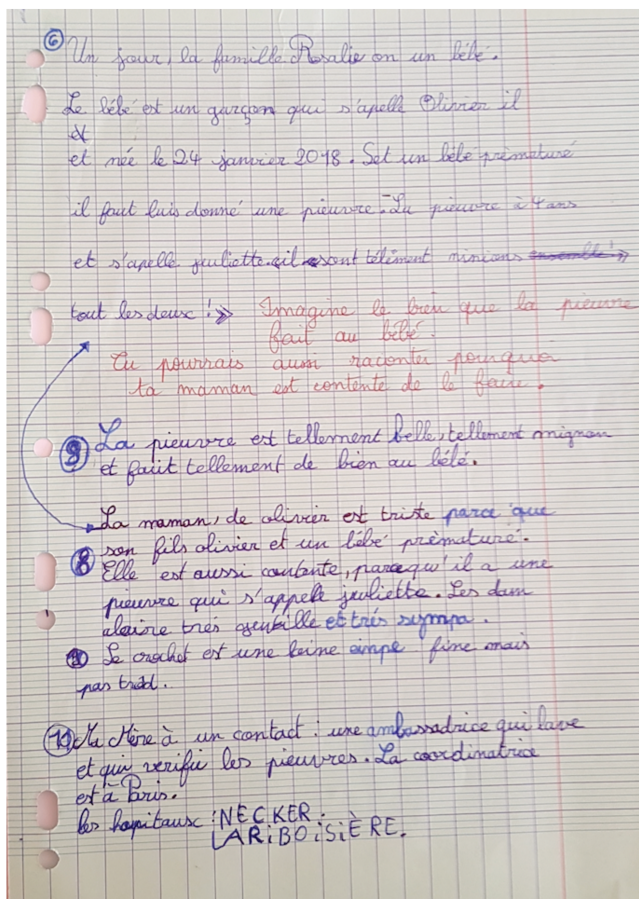 ⑥ Un jour, la famille Rosalie on un bébé.
Le bébé est un garçon qui s'apelle Olivier il
et née le 24 janvier 2018. Set un bébé prématuré
il faut luis donné une pieuvre. La pieuvre à 4 ans
et s'apelle juliette. il sont tèlèment minions ensemble !»
tout les deux !» Imagine le bien que la pieuvre
fait au bébé.
Tu pourrais aussi raconter pourquoi
ta maman est contente de le faire.
⑨ La pieuvre est tellement belle, tellement mignon
et fait tellement de bien au bébé.
La maman, de olivier est triste parce que
⑧ son fils olivier et un bébé prèmaturé.
Elle est aussi contente, parcequ'il a une
pieuvre qui s'appele juliette. Les dam
très gentille et trés sympa.
⑩ Le crochet est une laine fine mais
pas
⑪ Ma Mère à un contact : une ambassadrice qui lave
et qui verifie les pieuvres. La coordinatrice
est à Paris.
les hopitaux : NECKER.
LARIBOISIÈRE.